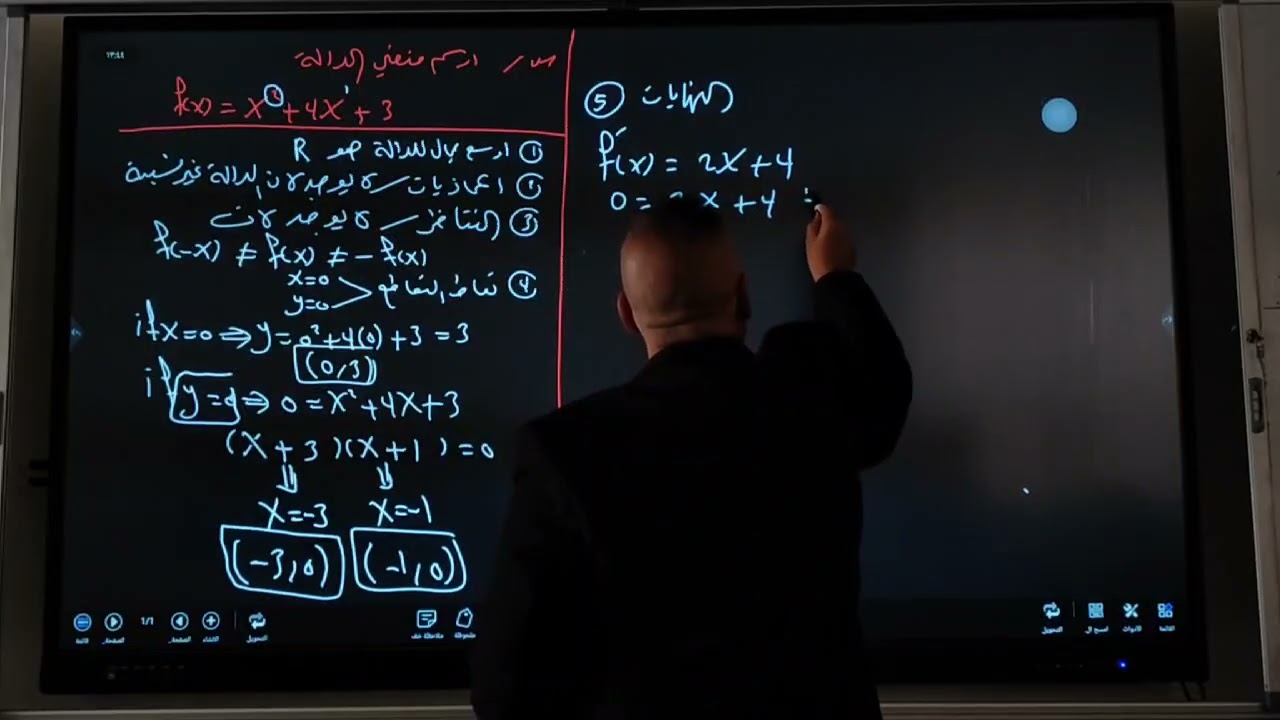 ١٣:٤٤
مد / ارسم منحني الدالة
f(x) = x² + 4x¹ + 3
① اوسع مجال للدالة هو R
② المحاذيات لا يوجد لان الدالة غير نسبية
③ التناظر لا يوجد لان
f(-x) ≠ f(x) ≠ - f(x)
④ نقاط التقاطع x=0
y=0
if x=0 ⇒ y = 0² + 4(0) + 3 = 3
(0,3)
if y=0 ⇒ 0 = x² + 4x + 3
(x + 3)(x + 1) = 0
x=-3 x=-1
(-3,0) (-1,0)
⑤ النهايات
f́(x) = 2x + 4
0 = x + 4 ÷
1/1